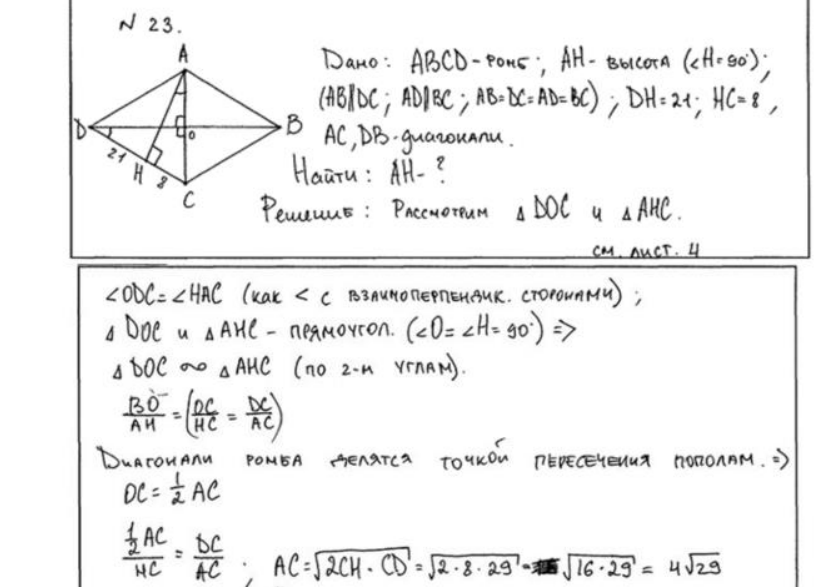 N 23.
A
Дано: ABCD - ромб; AH - высота (∠H=90°);
(AB∥DC; AD∥BC; AB=DC=AD=BC); DH=21; HC=8,
D
O
B
AC, DB - диагонали.
21
H
8
C
Найти: AH - ?
Решение: Рассмотрим △DOC и △AHC.
см. лист. 4
∠ODC=∠HAC (как < с взаимноперпендик. сторонами);
△DOC и △AHC - прямоугол. (∠O=∠H=90°) =>
△DOC ∾ △AHC (по 2-м углам).
BO/AH = (OC/HC = DC/AC)
Диагонали ромба делятся точкой пересечения пополам. =>
OC = 1/2 AC
1/2 AC/HC = DC/AC ; AC=√2CH·CD = √2·8·29 = √16·29 = 4√29